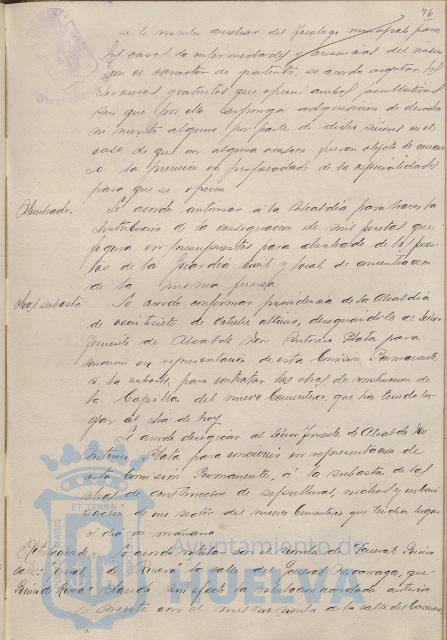 76
se le nombre auxiliar del Tocólogo municipal para
los casos de enfermedades y ausencias del mismo
con el carácter de gratuito, se acordó aceptar los
servicios gratuitos que ofrecen ambos facultativos
sin que por ello suponga adquisición de derecho
ni mérito alguno por parte de dichos Señores en el
caso de que en alguna ocasión fueran objeto de
la provisión en propiedad de las especialidades
para que se ofrecen.
Alumbrado. Se acordó autorizar a la Alcaldía para hacer la
distribución de la consignación de mil pesetas que
figura en Presupuestos para alumbrado de los
de la Guardia Civil y local de concentración
de la misma fuerza.
subasta Se acordó confirmar providencia de la Alcaldía
de veintisiete de Octubre último, designando al Señor
Teniente de Alcalde Don Antonio Plata para
concurrir en representación de esta Comisión Permanente,
a la subasta para contratar las obras de construcción de
la Capilla del nuevo Cementerio, que ha tenido lu-
gar el día de hoy.
Se acordó designar al Señor Teniente de Alcalde Don
Antonio Plata para concurrir en representación de
esta Comisión Permanente, á la subasta de las
obras de construcción de sepulturas, nichos y urbani-
zación de un sector del nuevo Cementerio que tendrá lugar
el día de mañana
Rotulación de Se acordó rotular con el nombre de General Primo
calle: General de Rivera la calle del General Azcárraga, que-
Primo de Rivera dando sin efecto la rotulación acordada anterior-
mente con el mismo nombre de la calle del
Ayuntamiento de
HUELVA